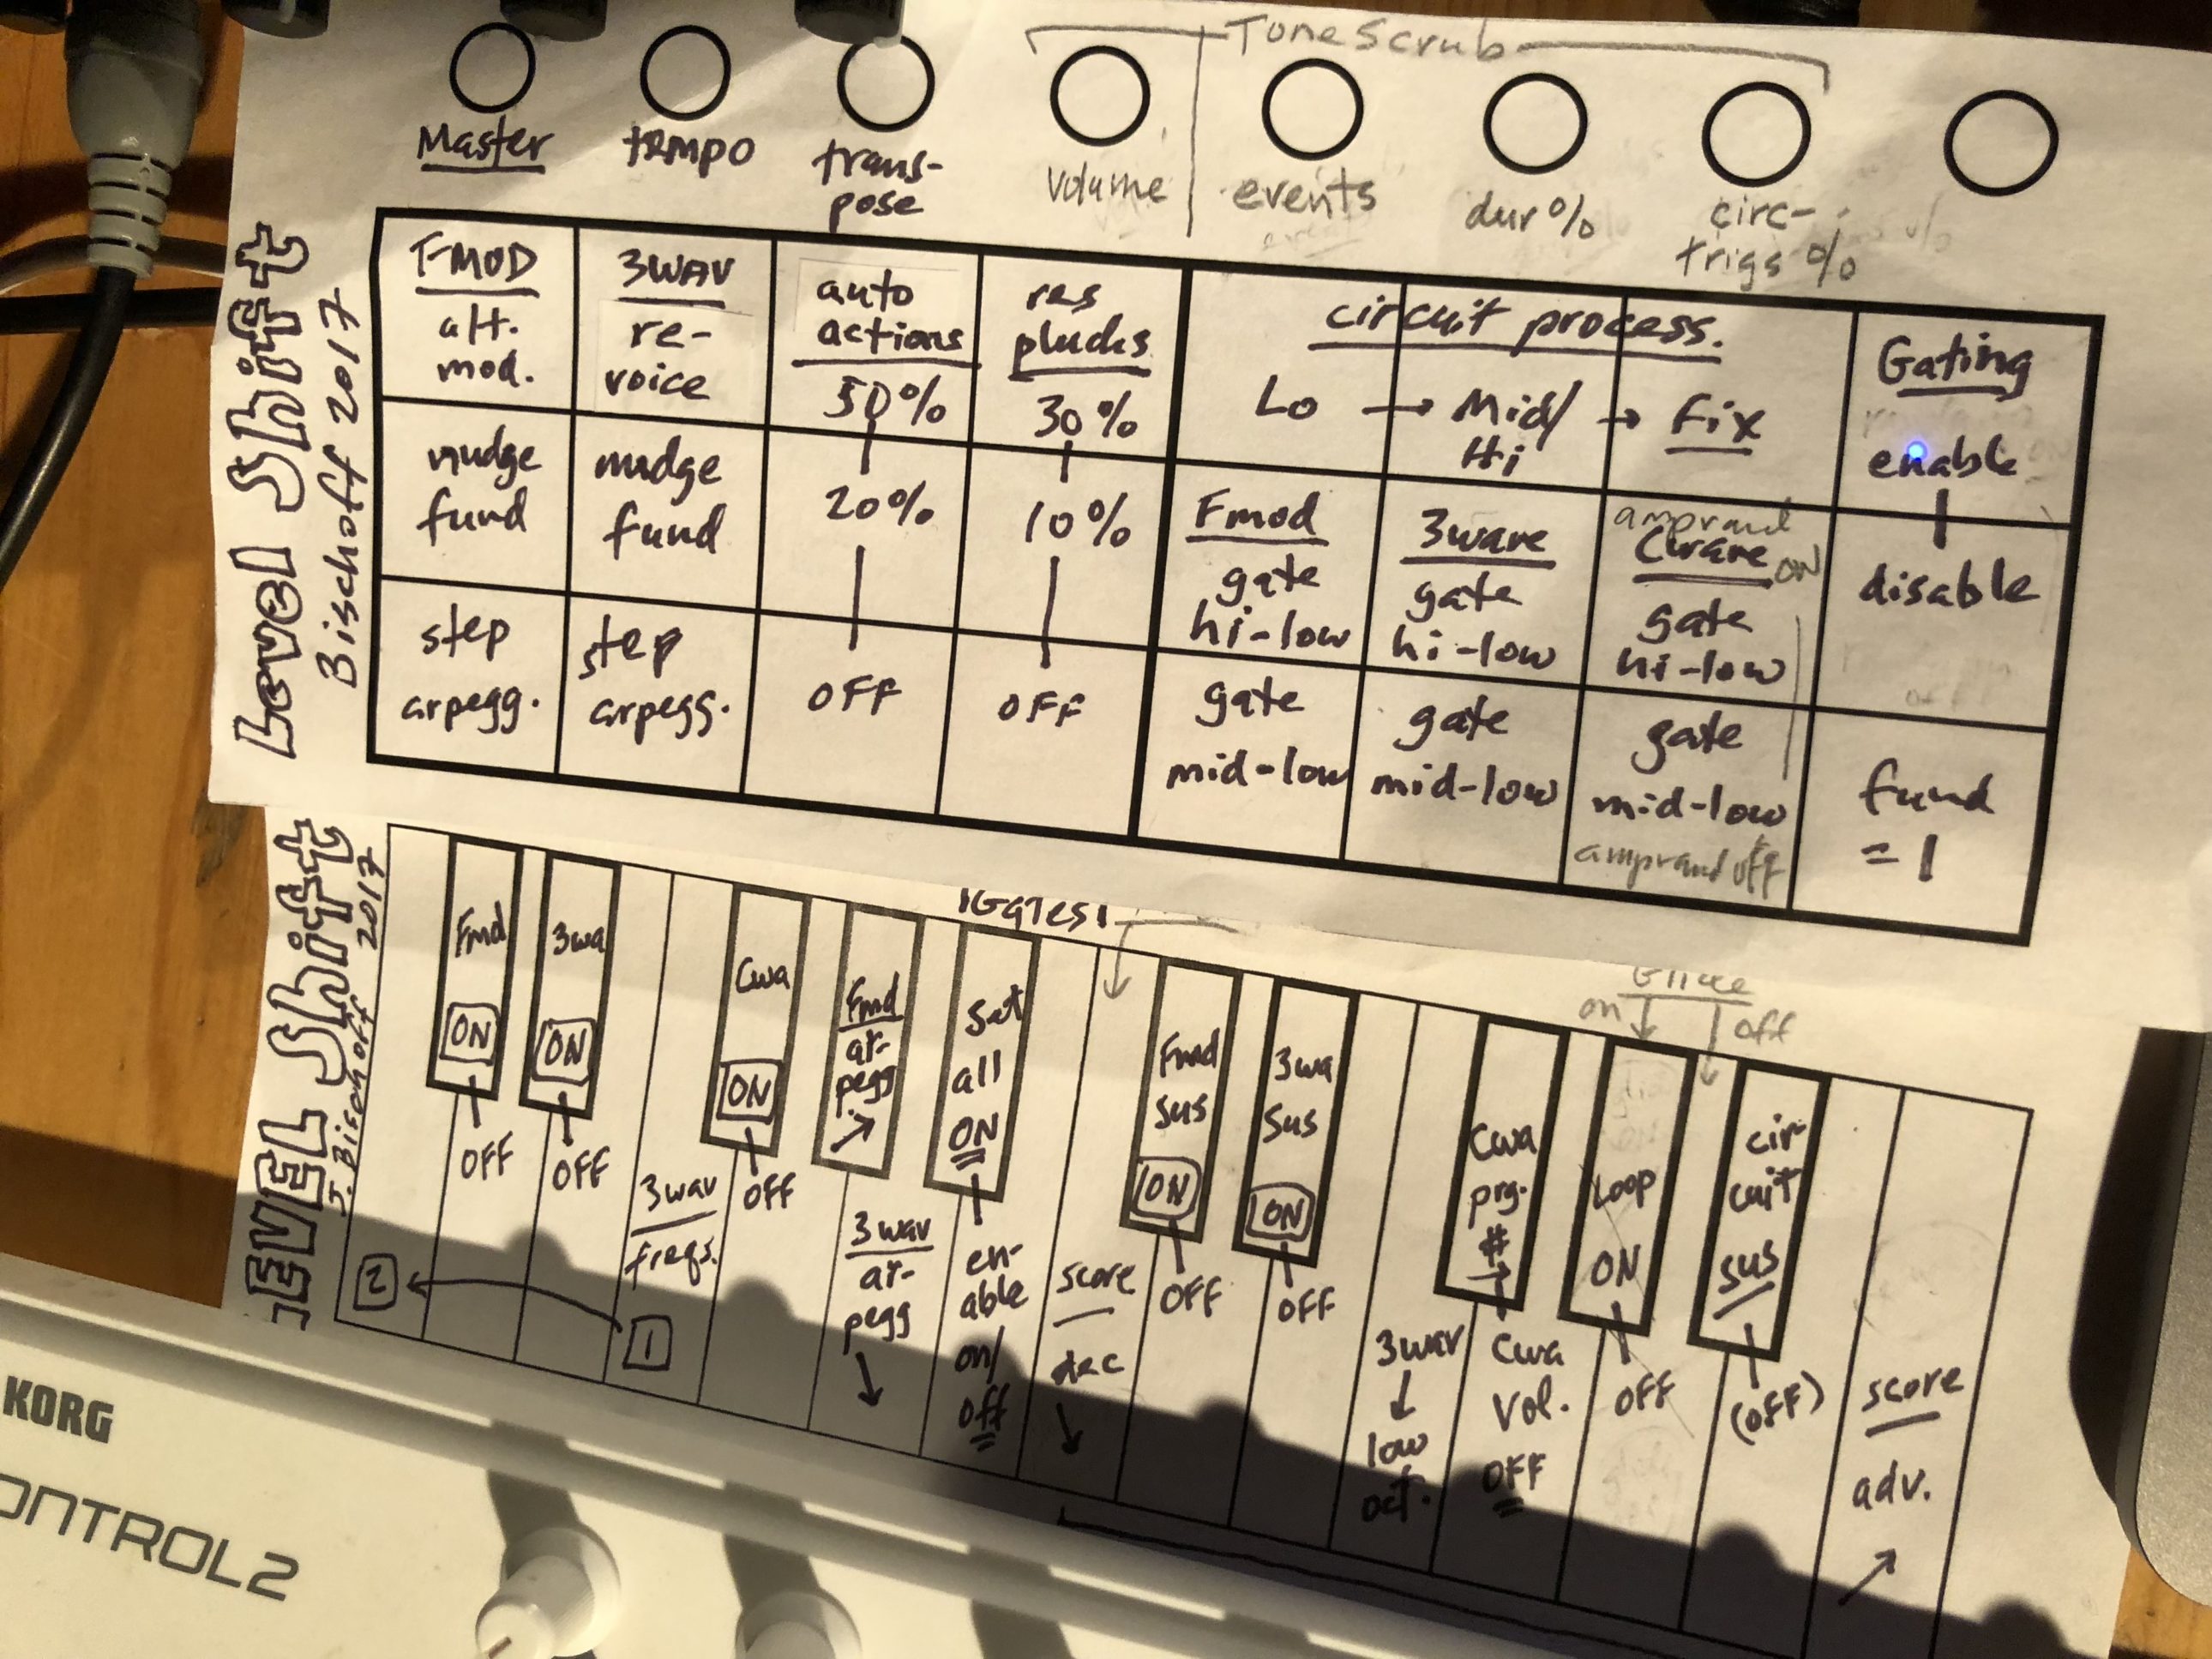 ToneScrub
Master
tempo
trans-
pose
volume
events
dur%
circ-
trigs %
Level Shift
Bischoff 2017
F-MOD
alt.
mod.
3WAV
re-
voice
auto
actions
50%
res
plucks
30%
circuit process.
Lo → Mid/
Hi
→ Fix
Gating
enable
nudge
fund
nudge
fund
20%
10%
Fmod
gate
hi-low
3wave
gate
hi-low
amprand
Cwave ON
gate
hi-low
disable
step
arpegg.
step
arpegg.
OFF
OFF
gate
mid-low
gate
mid-low
gate
mid-low
amprand off
fund
= 1
LEVEL Shift
J. Bischoff 2017
Gates
on
off
Fmd
ON
OFF
3wa
ON
OFF
3wav
freqs.
Cwa
ON
OFF
Fmd
ar-
pegg
→
3wav
ar-
pegg
↓
Set
all
ON
en-
able
on/
off
score
dec
↓
Fmd
sus
ON
OFF
3wa
sus
ON
OFF
3wav
↓
low
oct.
Cwa
prg.
#
→
Cwa
Vol.
OFF
Loop
ON
OFF
cir-
cuit
sus
(OFF)
score
adv.
2
1
KORG
ONTROL2